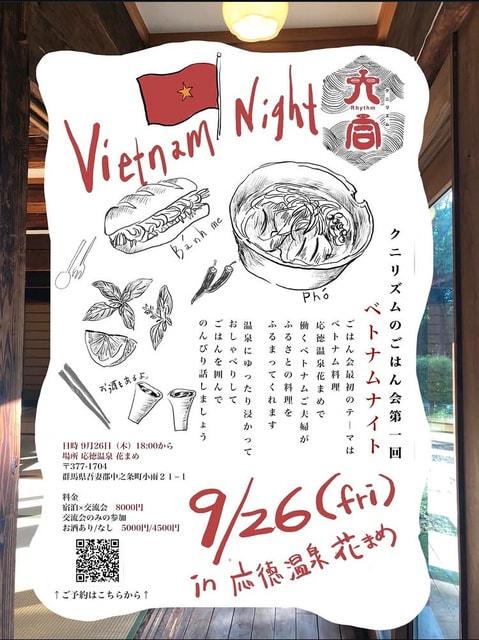 Vietnam Night
六合
Rhythm
クニリズム
Bánh me
phở
クニリズムのごはん会第一回
ベトナムナイト
ごはん会最初のテーマは
ベトナム料理
応徳温泉花まめで
働くベトナムご夫婦が
ふるさとの料理を
ふるまってくれます
温泉にゆったり浸かって
おしゃべりして
ごはんを囲んで
のんびり話しましょう
お酒もあるよ。
日時 9月26日（木）18:00から
場所 応徳温泉 花まめ
〒377-1704
群馬県吾妻郡中之条町小雨２１−１
料金
宿泊×交流会 8000円
交流会のみの参加
お酒あり/なし 5000円/4500円
↑ご予約はこちらから↑
9/26(fri)
in 応徳温泉 花まめ